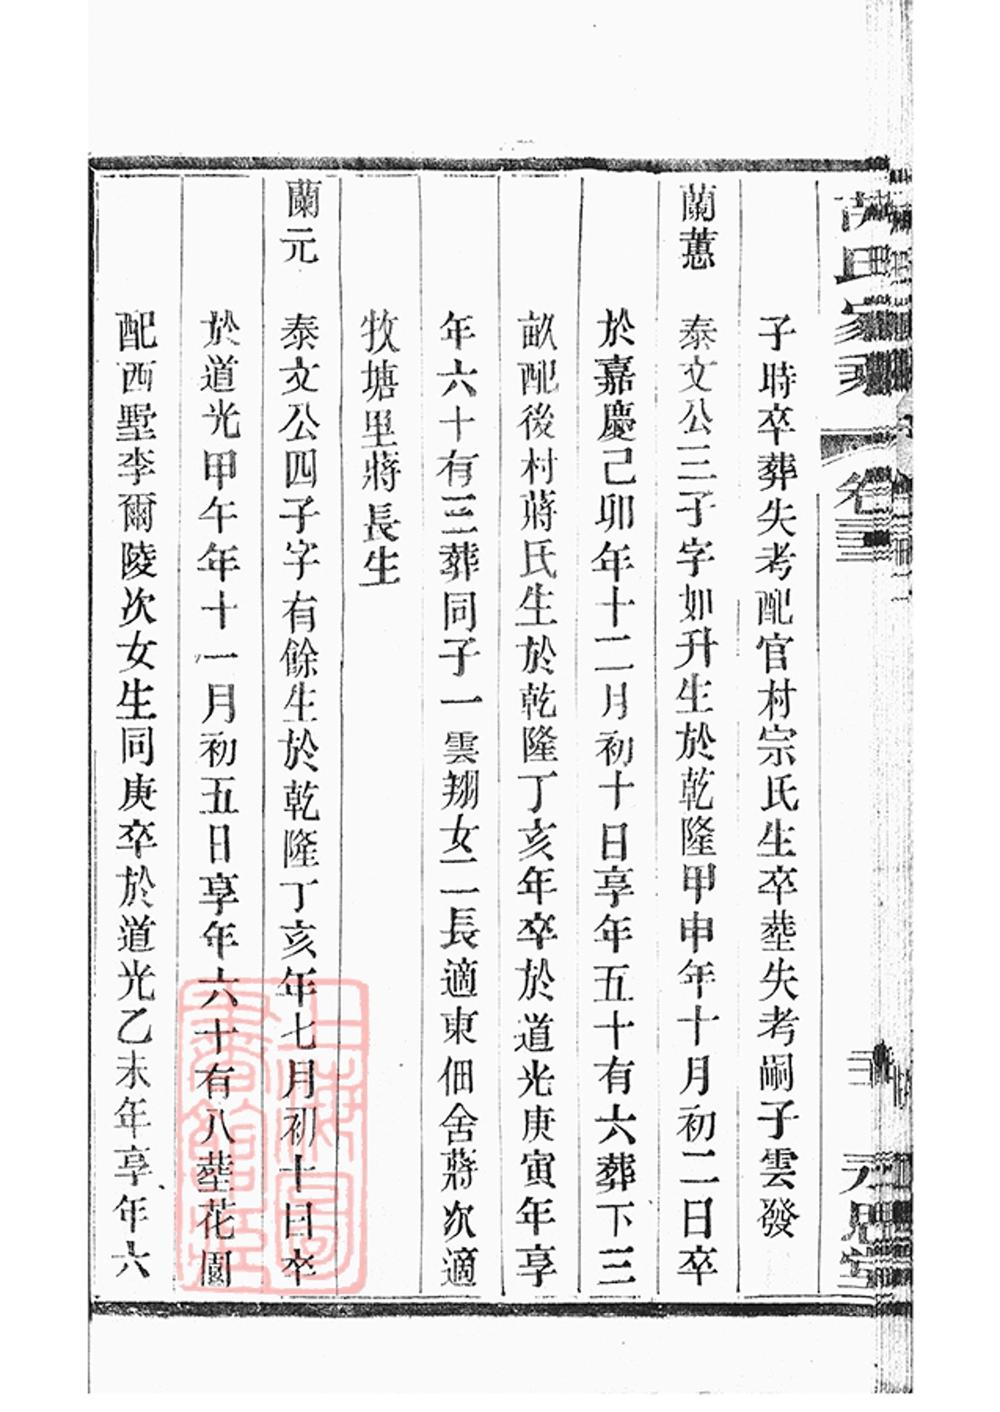 子時卒葬失考配官村宗氏生卒塟失考嗣子雲發
蘭蕙 泰文公三子字如升生於乾隆甲申年十月初二日卒
於嘉慶己卯年十二月初十日享年五十有六葬下三
畝配後村蔣氏生於乾隆丁亥年卒於道光庚寅年享
年六十有三葬同子一雲翔女二長適東佃舍蔣次適
牧塘里蔣長生
蘭元 泰文公四子字有餘生於乾隆丁亥年七月初十日卒
於道光甲午年十一月初五日享年六十有八塟花園
配西墅李爾陵次女生同庚卒於道光乙未年享年六
上海圖書館藏